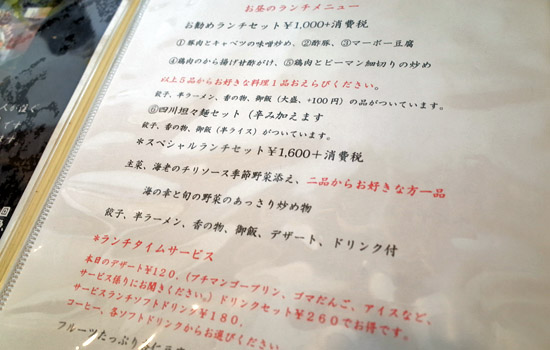 お昼のランチメニュー
お勧めランチセット￥1,000+消費税
①豚肉とキャベツの味噌炒め、②酢豚、③マーボー豆腐
④鶏肉のから揚げ甘酢がけ、⑤鶏肉とピーマン細切りの炒め
以上5品からお好きな料理1品おえらびください。
餃子、半ラーメン、香の物、御飯（大盛、+100円）の品がついています。
⑥四川坦々麺セット（辛み加えます
餃子、香の物、御飯（半ライス）がついています。
*スペシャルランチセット￥1,600+消費税
主菜、海老のチリソース季節野菜添え、二品からお好きな方一品
海の幸と旬の野菜のあっさり炒め物
餃子、半ラーメン、香の物、御飯、デザート、ドリンク付
*ランチタイムサービス
本日のデザート￥120、（プチマンゴープリン、ゴマだんご、アイスなど、
サービス係りにお聞きください。）ドリンクセット￥260でお得です。
サービスランチソフトドリンク￥180、
コーヒー、各ソフトドリンクからお選びください
フルーツたっぷり